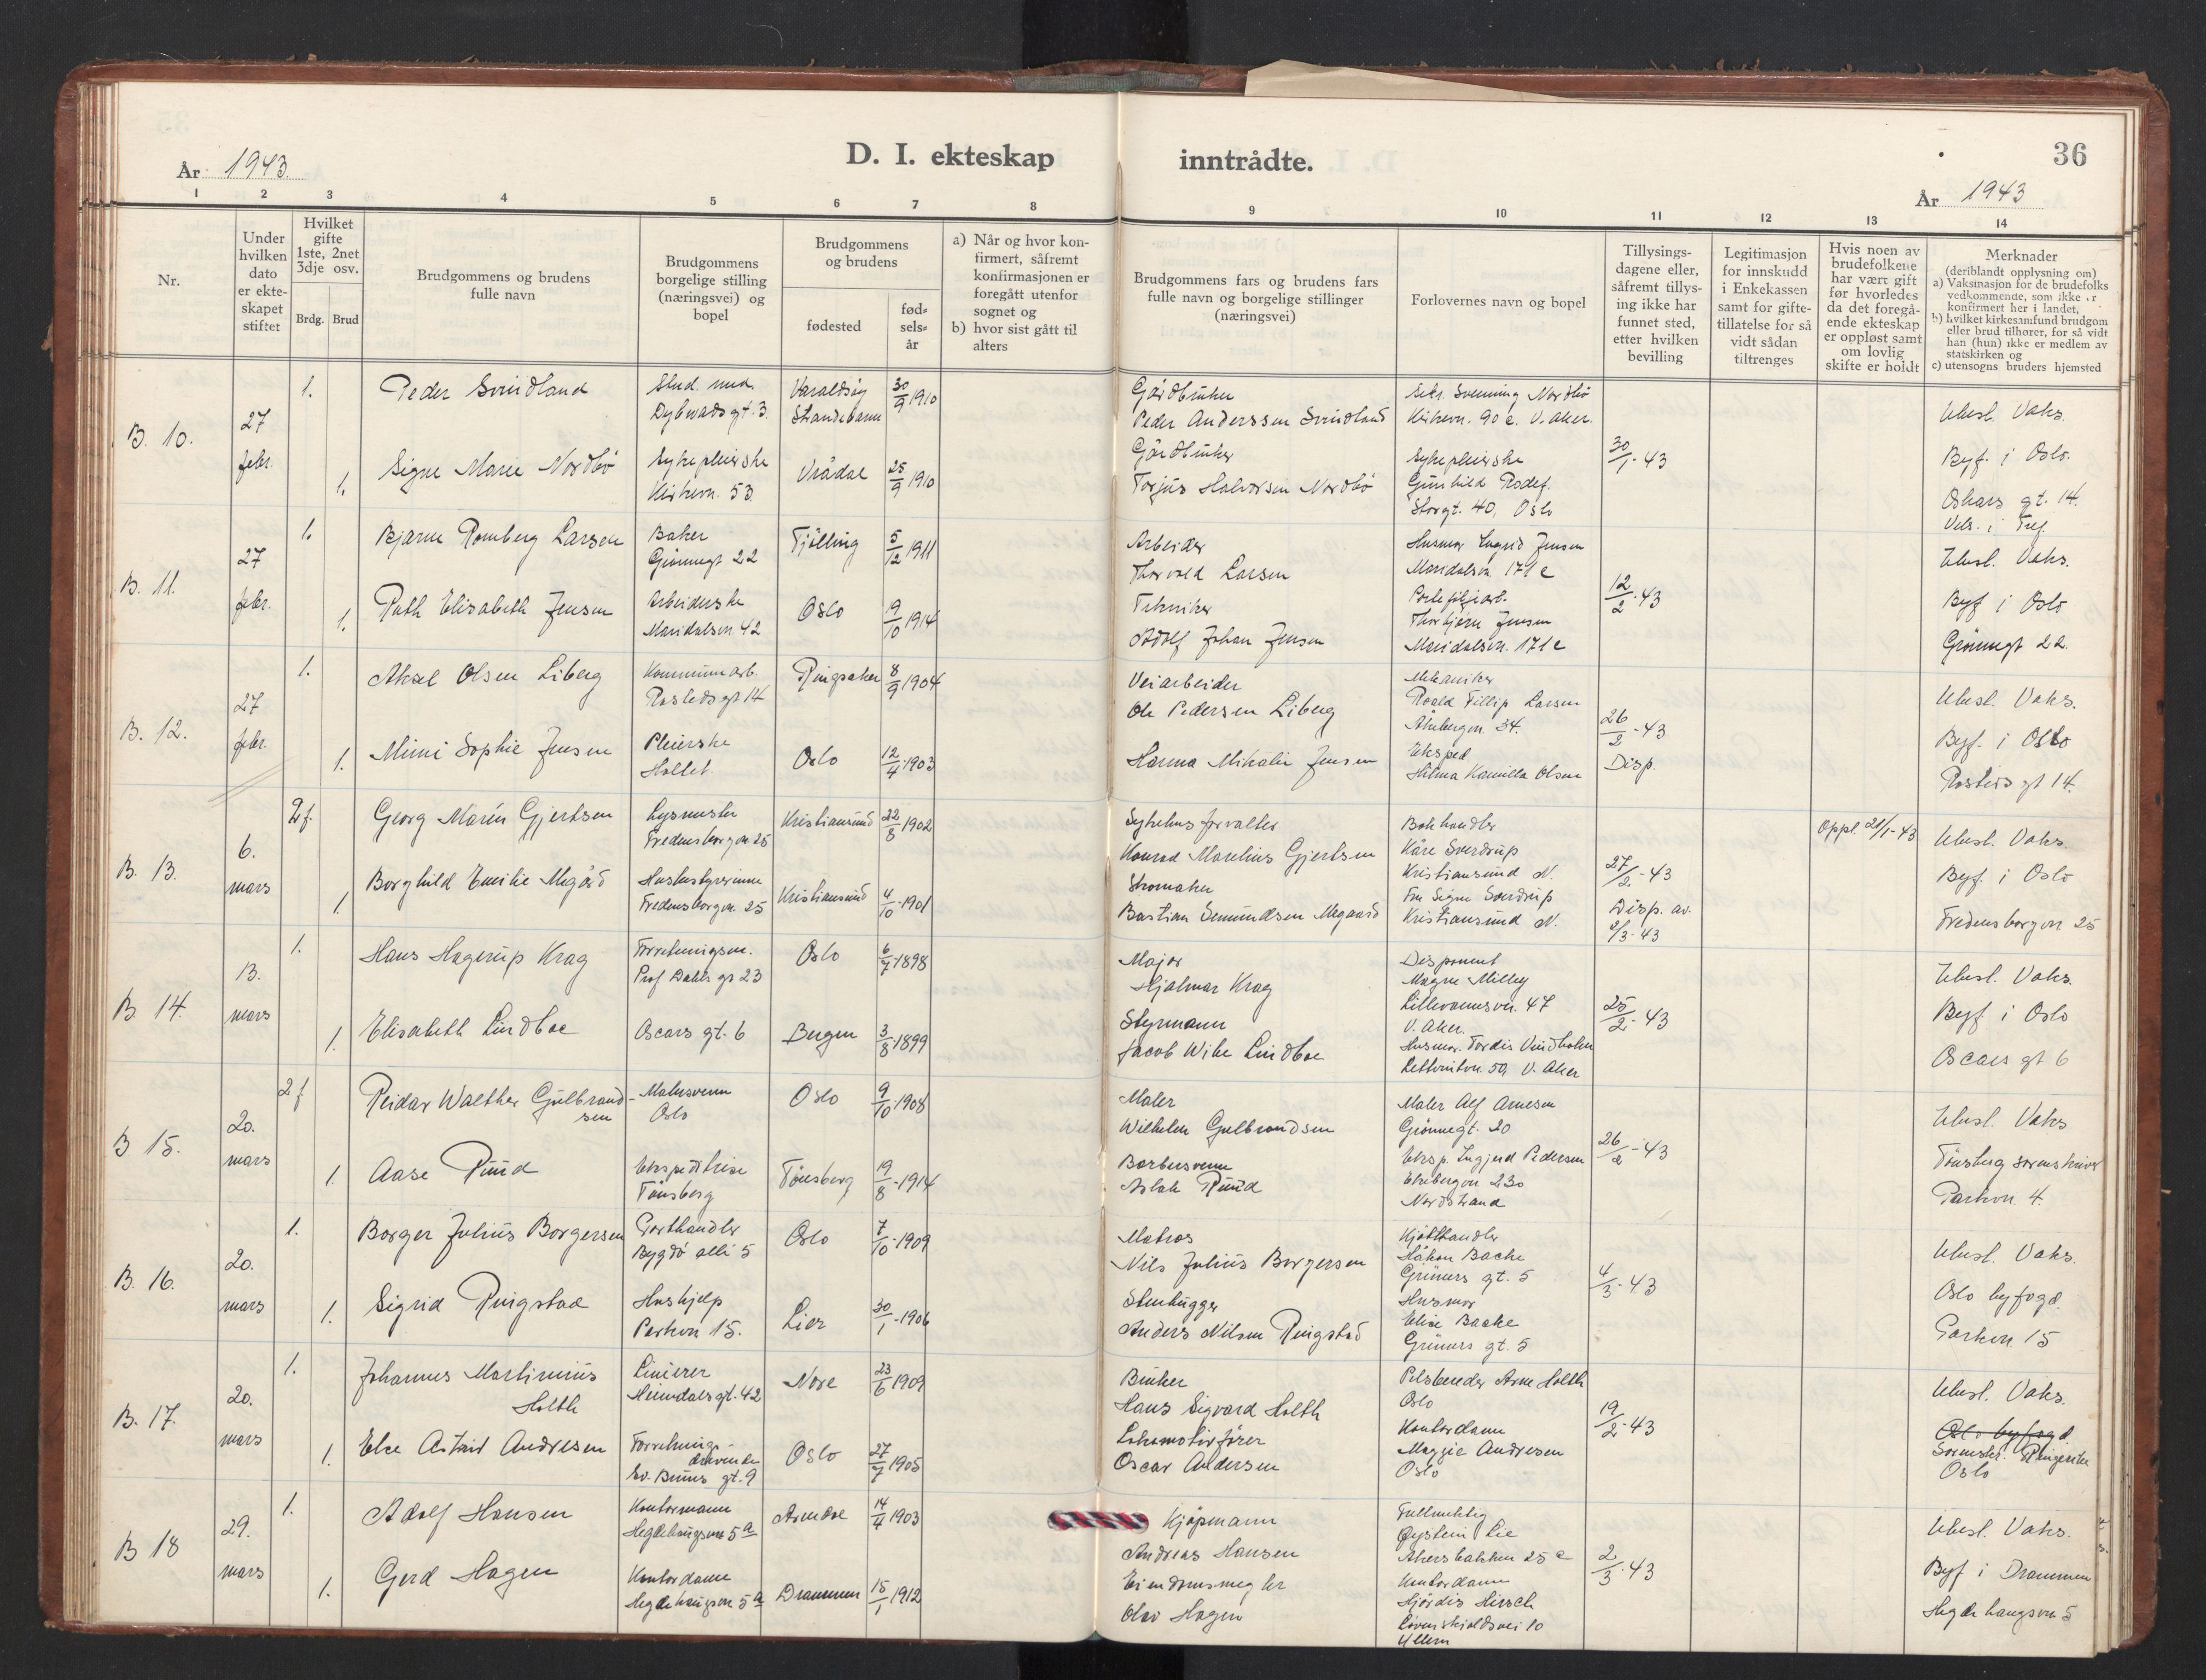 År 1943
D. I. ekteskap
inntrådte.
36
År 1943
1 2 3 4 5 6 7 8 9 10 11 12 13 14
Nr.
Under hvilken dato er ekteskapet stiftet
Hvilket gifte 1ste, 2net 3dje osv.
Brdg. Brud
Brudgommens og brudens fulle navn
Brudgommens borgelige stilling (næringsvei) og bopel
Brudgommens og brudens
fødested
fødselsår
a) Når og hvor konfirmert, såfremt konfirmasjonen er foregått utenfor sognet og
b) hvor sist gått til alters
Brudgommens fars og brudens fars fulle navn og borgelige stillinger (næringsvei)
Forlovernes navn og bopel
Tillysingsdagene eller, såfremt tillysing ikke har funnet sted, etter hvilken bevilling
Legitimasjon for innskudd i Enkekassen samt for giftetillatelse for så vidt sådan tiltrenges
Hvis noen av brudefolkene har vært gift før hvorledes da det foregående ekteskap er oppløst samt om lovlig skifte er holdt
Merknader
(deriblandt opplysning om)
a) Vaksinasjon for de brudefolks vedkommende, som ikke er konfirmert her i landet,
b) hvilket kirkesamfund brudgom eller brud tilhører, for så vidt han (hun) ikke er medlem av statskirken og
c) utensogns bruders hjemsted
B. 10.
27 febr.
1.
Peder Svindland
Stud. med.
Dybwads gt. 3
Varaldsøy
Strandebarm
30/9 1910
Gårdbruker
Peder Anderssen Svindland
Sekr. Svenning Nordbö
Kirkevn. 90 c. V. Aker.
1.
Signe Marie Nordbö
Sykepleierske
Kirkevn. 53
Vrådal
25/9 1910
Gårdbruker
Torjus Halvorsen Nordbö
Sykepleierske
Gunhild
Storgt. 40, Oslo
30/1-43
Utest. Vaks.
Byf. i Oslo.
Oskars gt. 14.
B. 11.
27 febr.
1.
Bjarne Romberg Larsen
Baker
Grönnegt 22
Tjölling
5/12 1911
Arbeider
Thorvald Larsen
Husmor Ingrid Jensen
Maridalsvn. 171 c
1.
Ruth Elisabeth Jensen
Arbeiderske
Maridalsvn. 42
Oslo
19/10 1914
Tekniker
Adolf Johan Jensen
Thorbjörn Jensen
Maridalsvn. 171 c
12/2-43
Utest. Vaks.
Byf i Oslo
Grönnegt 22.
B. 12.
27 febr.
1.
Aksel Olsen Liberg
Kommunearb.
Rosteds gt 14
Ringsaker
8/9 1904
Veiarbeider
Ole Pedersen Liberg
Mekaniker
Roald Fillip Larsen
Åkebergvn. 34.
1.
Mimi Sophie Jensen
Pleierske
Oslo
12/4 1903
Hanna Mikaline Jensen
Eksped.
Hilma Kamilla Olsen
26/2-43
Disp.
Utest. Vaks.
Byf. i Oslo
Rosteds gt 14.
B. 13.
6. mars
2 f.
Georg Marin Gjertsen
Lysmester
Fredensborgvn 25
Kristiansund
22/8 1902
Sykehusforvalter
Konrad Marelius Gjertsen
Bokhandler
Kåre Sverdrup
Kristiansund N.
1.
Borghild Emilie Megård
Husbestyrerinne
Fredensborgvn. 25
Kristiansund
4/10-1901
Bastian Semundsen Megaard
Fru Signe Sverdrup
Kristiansund N.
27/2-43
Disp. av
2/3-43
Oppl. 21/1-43
Utest. Vaks.
Byf. i Oslo
Fredensborgvn 25
B. 14.
13. mars
1.
Hans Hagerup Krag
Forretningsm.
Prof Dahls gt 23
Oslo
6/7 1898
Major
Hjalmar Krag
Disponent
Magne Milley
Lillevannsvn. 47
V. Aker.
1.
Elisabeth Lindboe
Oscars gt. 6
Bergen
3/8 1899
Styrmann
Jacob Wibe Lindboe
Husmor. Tordis Vindholm
V. Aker
25/2-43
Utest. Vaks.
Byf i Oslo
Oscars gt 6
B 15.
20. mars
2 f
Reidar Walther Gulbrandsen
Malersvenn
Oslo
Oslo
9/10 1908
Maler
Wilhelm Gulbrandsen
Maler Alf Arnesen
Grönnegt. 20
1.
Aase Ruud
Ekspeditrise
Tönsberg
Tönsberg
19/8-1914
Barbersvenn
Aslak Ruud
Eksp. Ingjerd Pedersen
Ekebergvn 230
Nordstrand
26/2-43
Utest. Vaks
Tönsberg sorenskriver
Parkvn. 4.
B. 16.
20. mars
1.
Borger Julius Borgersen
Sporthandler
Bygdö allé 5
Oslo
7/10-1909
Matros
Nils Julius Borgersen
Kjötthandler
Håkon Backe
Grüners gt. 5
1.
Sigrid Ringstad
Hushjelp
Parkvn 15.
Lier
30/1-1906
Stenhugger
Anders Nilsen Ringstad
Husmor
Elise Backe
Grüners gt. 5
4/3-43
Utest. Vaks.
Oslo byfogd.
Parkvn. 15
B. 17.
20. mars
1.
Johannes Martinius
Holth
Linierer
Heimdalsgt. 42
Nore
23/6 1909
Bruker
Hans Sigvard Holth
Pelsbereder Arne Holth
Oslo
1.
Else Astrid Andresen
Forretningsdrivende
Sv. Bruns gt. 9
Oslo
27/7 1905
Lokomotivförer
Oscar Andersen
Kontordame
Maggie Andresen
Oslo
19/2-43
Utest. Vaks.
Oslo byfogd
Sorenskr. Ringerike
Oslo
B 18
29. mars
1.
Adolf Hansen
Kontormann
Hegdehaugsvn 5a
Arendal
14/4 1903
Kjøpmann
Andreas Hansen
Fullmektig
Øystein Lie
Akersbakken 25 c
1.
Gerd Hagen
Kontordame
Hegdehaugsvn 5a
Drammen
15/1 1912
Eiendomsmegler
Olav Hagen
Kontordame
Hjördis Hirsch
Løvenskioldsvei 10
Ullern
2/3-43
Utest. Vaks.
Byf i Drammen
Hegdehaugsvn 5